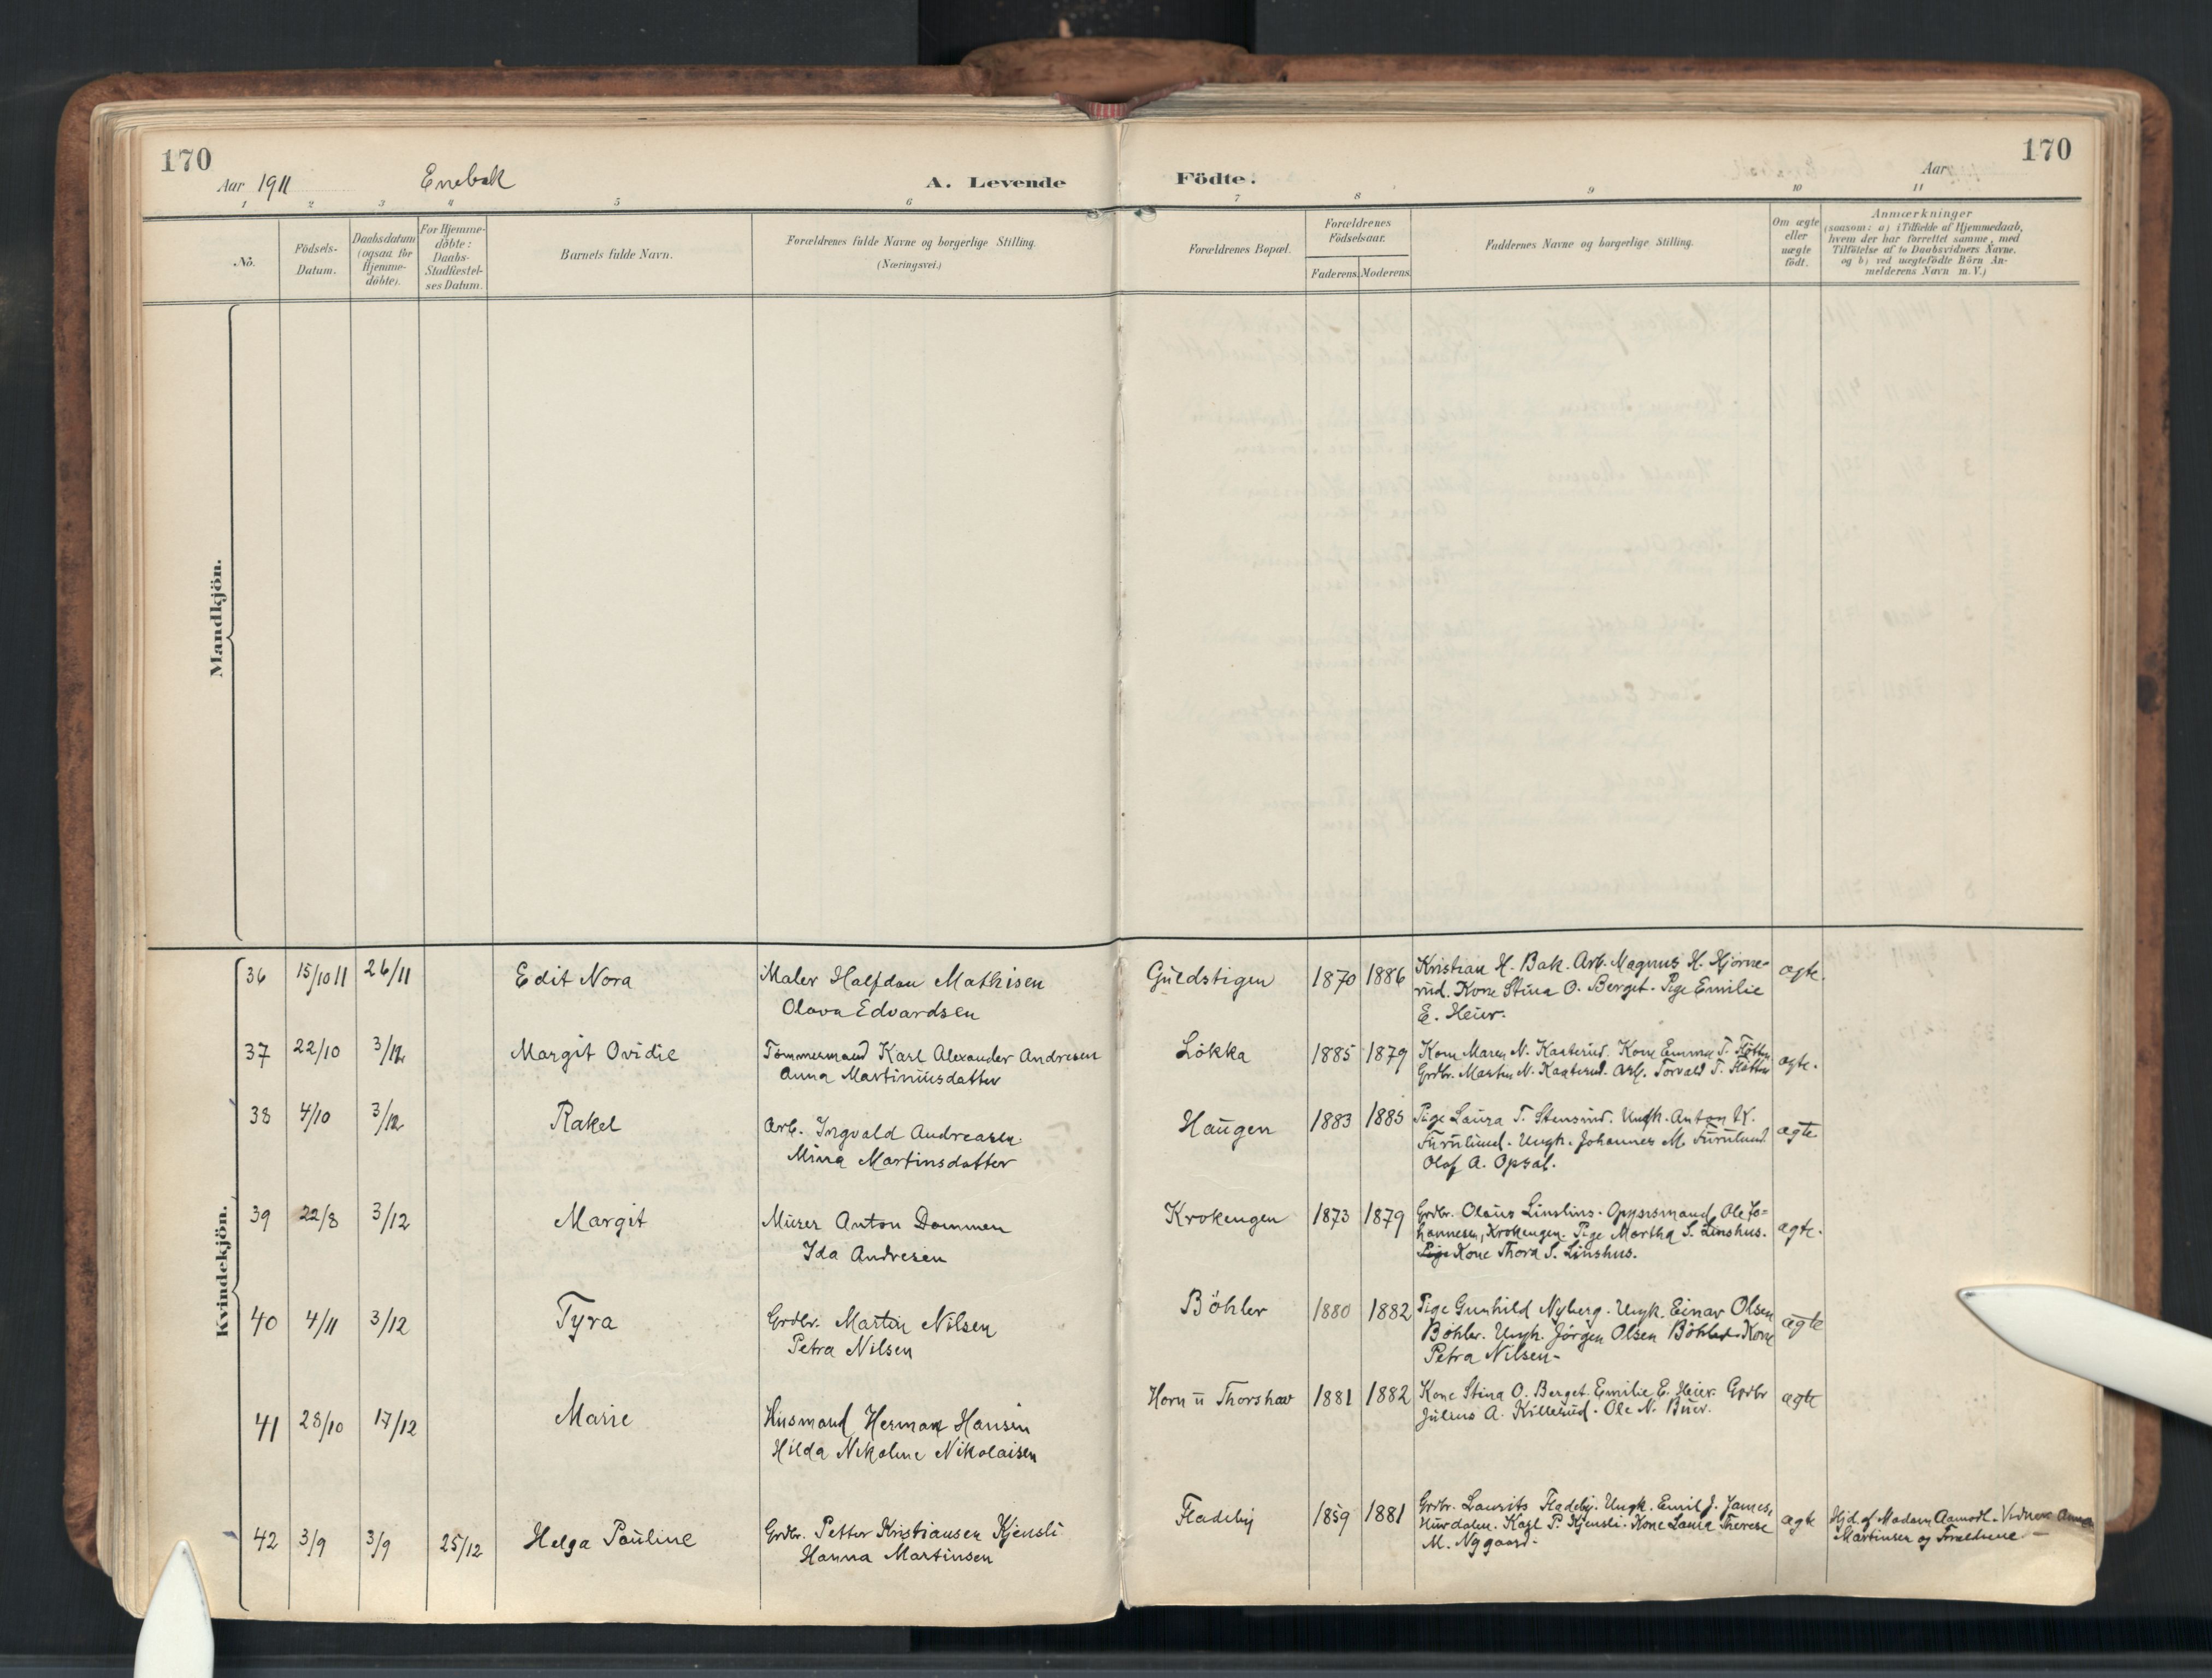 170
Aar 1911
Enebak
A. Levende
Födte.
Aar
170
1 2 3 4 5 6 7 8 9 10 11
No.
Födsels-
Datum.
Daabsdatum
(ogsaa for
Hjemme-
döbte).
For Hjemme-
döbte:
Daabs-
Stadfæstel-
ses Datum.
Barnets fulde Navn.
Forældrenes fulde Navne og borgerlige Stilling.
(Næringsvei.)
Forældrenes Bopæl.
Forældrenes
Födselsaar.
Faderens. Moderens.
Faddernes Navne og borgerlige Stilling.
Om ægte
eller
uægte
födt.
Anmærkninger
(saasom: a) i Tilfælde af Hjemmedaab,
hvem der har forrettet samme, med
Tilföielse af to Daabsvidners Navne.
og b) ved uægtefödte Börn An-
melderens Navn m. V.)
Mandkjön.
Kvindekjön.
36 15/10 11 26/11 Edit Nora
Maler Halfdan Mathisen
Olava Edvardsen
Guldstigen 1870 1886
Kristian H. Bak. Arb. Magnus H. Hjörne-
rud. Kone Stina O. Berget. Pige Emilie
E. Heier.
ægte.
37 22/10 3/12 Margit Ovidie
Tömmermand Karl Alexander Andresen
Anna Martiniusdatter
Lökka 1885 1879
Kone Maren N. Kaaterud. Kone Emma T.
Grdbr. Martin N. Kaaterud. Arb. Torvald T.
ægte.
38 4/10 3/12 Rakel
Arb. Ingvald Andreasen
Mina Martinsdatter
Haugen 1883 1885
Pige Laura T. Stensrud. Ungk. Anton K.
Furulund. Ungk. Johannes M. Furulund.
Olaf A. Opsal.
ægte
39 22/8 3/12 Margit
Murer Anton Dammen
Ida Andresen
Krokengen 1873 1879
Grdbr. Olaus Linshus. Opsynsmand Ole Jo=
hannesen, Krokengen. Pige Martha S. Linshus.
Pige Kone Thora S. Linshus.
ægte.
40 4/11 3/12 Tyra
Grdbr. Martin Nilsen
Petra Nilsen
Böhler 1880 1882
Pige Gunhild Nyberg. Ungk. Einar Olsen
Böhler. Ungk. Jörgen Olsen Böhler. Kone
Petra Nilsen-
ægte
41 28/10 17/12 Marie
Husmand Herman Hansen
Hilda Nikoline Nikolaisen
Horn u Thorshav 1881 1882
Kone Stina O. Berget. Emilie E. Heier. Grdbr
Julius A. Killerud. Ole N. Buer.
ægte
42 3/9 3/9 25/12 Helga Pauline
Grdbr. Petter Kristiansen Kjensli
Hanna Martinsen
Fladeby 1859 1881
Grdbr. Laurits Fladeby. Ungk. Emil J.
Hurdalen. Karl P. Kjensli. Kone Laura Therese
M. Nygaard.
ægte
Hjd. af Madam Aamodt. Vidner Anna
Martinsen og Forældrene.